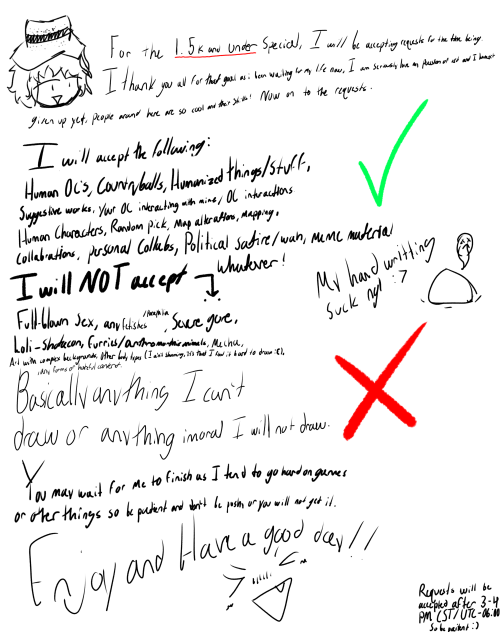 For the 1.5k and under special, I will be accepting requests for the time being.
I thank you all for that goal as i been waiting for my life now, I am seriously love my passion of art and I haven't
given up yet, people around here are so cool and their skills! Now on to the requests.
I will accept the following:
Human OC's, Countryballs, Humanized things/stuff,
Suggestive works, Your OC interacting with mine/OC interactions
Human Characters, Random pick, Map alterations, Mapping,
Collabrations, personal Collabs, Political satire/wah, Meme material
Whatever!
My hand writting
suck ngl :7
I will NOT accept
Full-blown sex, any fetishes, Severe gore,
Loli-Shotacon, Furries/anthromorphic animals, Mecha,
Art with complex backgrounds, Other body types (I ain't shaming, it's that I find it hard to draw :(),
any forms of hateful content.
Basically anything I can't
draw or anything imoral I will not draw.
You may wait for me to finish as I tend to go hard on games
or other things so be patient and don't be pushy or you will not get it.
Enjoy and Have a good day!!
Requests will be
accepted after 3-4
PM CST/UTC-06:00
So be patient :)